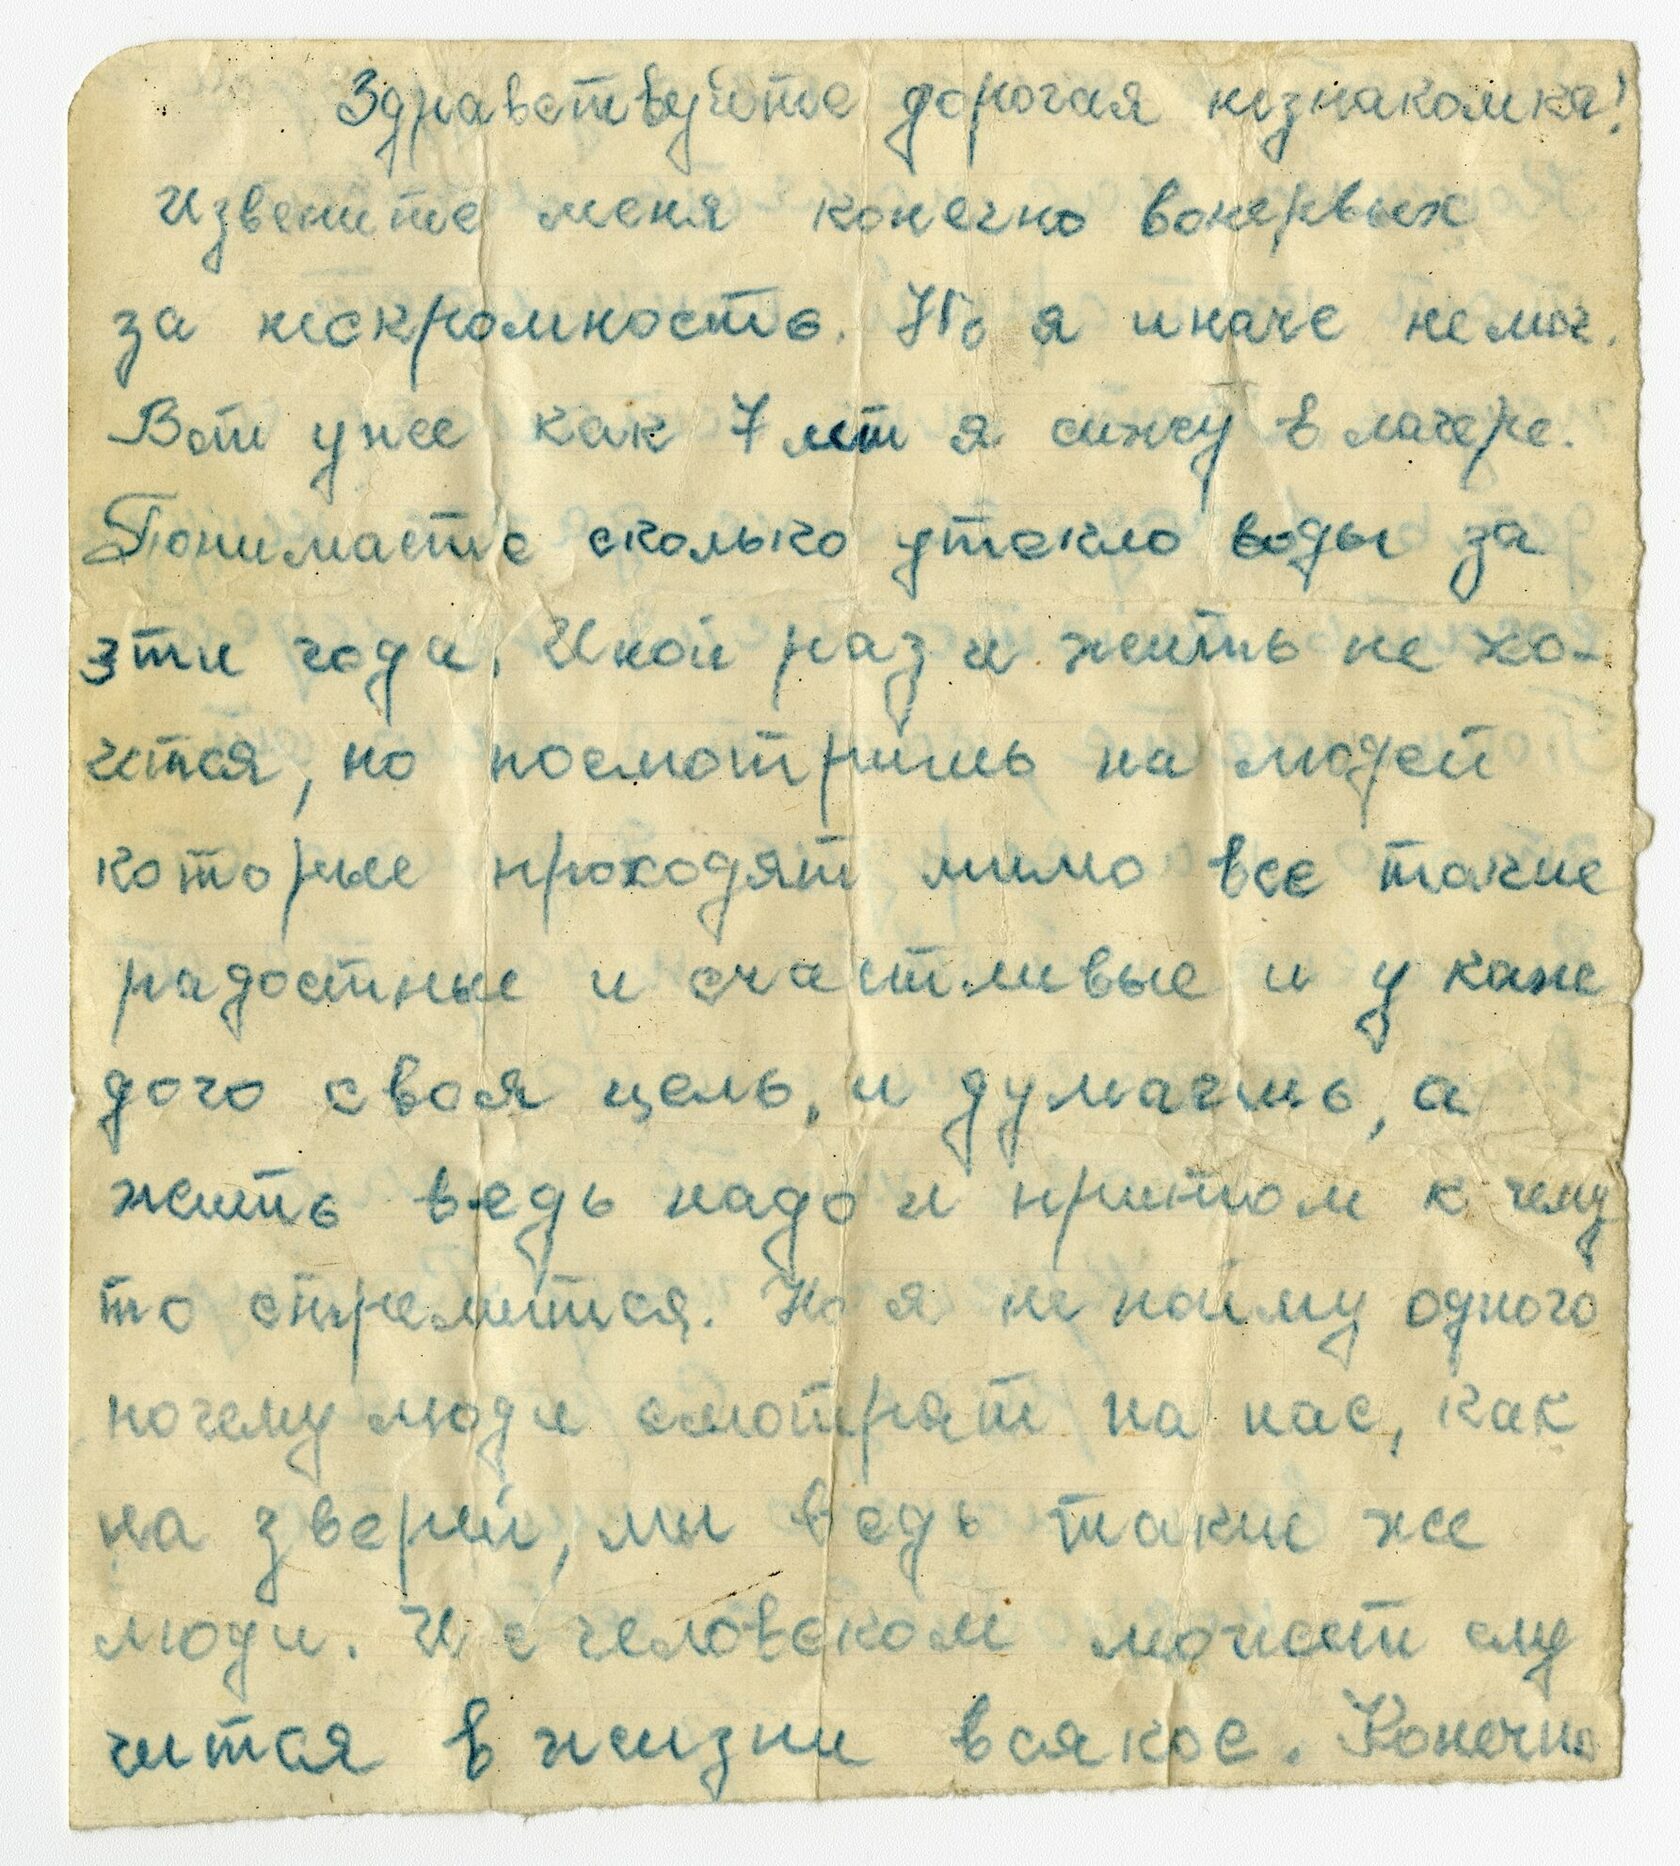 Здравствуйте дорогая незнакомка!
Извените меня конечно вопервых
за нескромность. Но я иначе немог.
Вот уже как 7 лет я сижу в лагере.
Понимаете сколько утекло воды за
эти года. Иной раз и жить не хо-
чется, но посмотришь на людей
которые проходят мимо все такие
радостные и счастливые и у каж
дого своя цель, и думаешь, а
жить ведь надо и притом к чему
то стремится. Но я не пойму одного
почему люди смотрят на нас, как
на зверей, мы ведь такие же
люди. И с человеком может слу
чится в жизни всякое. Конечно